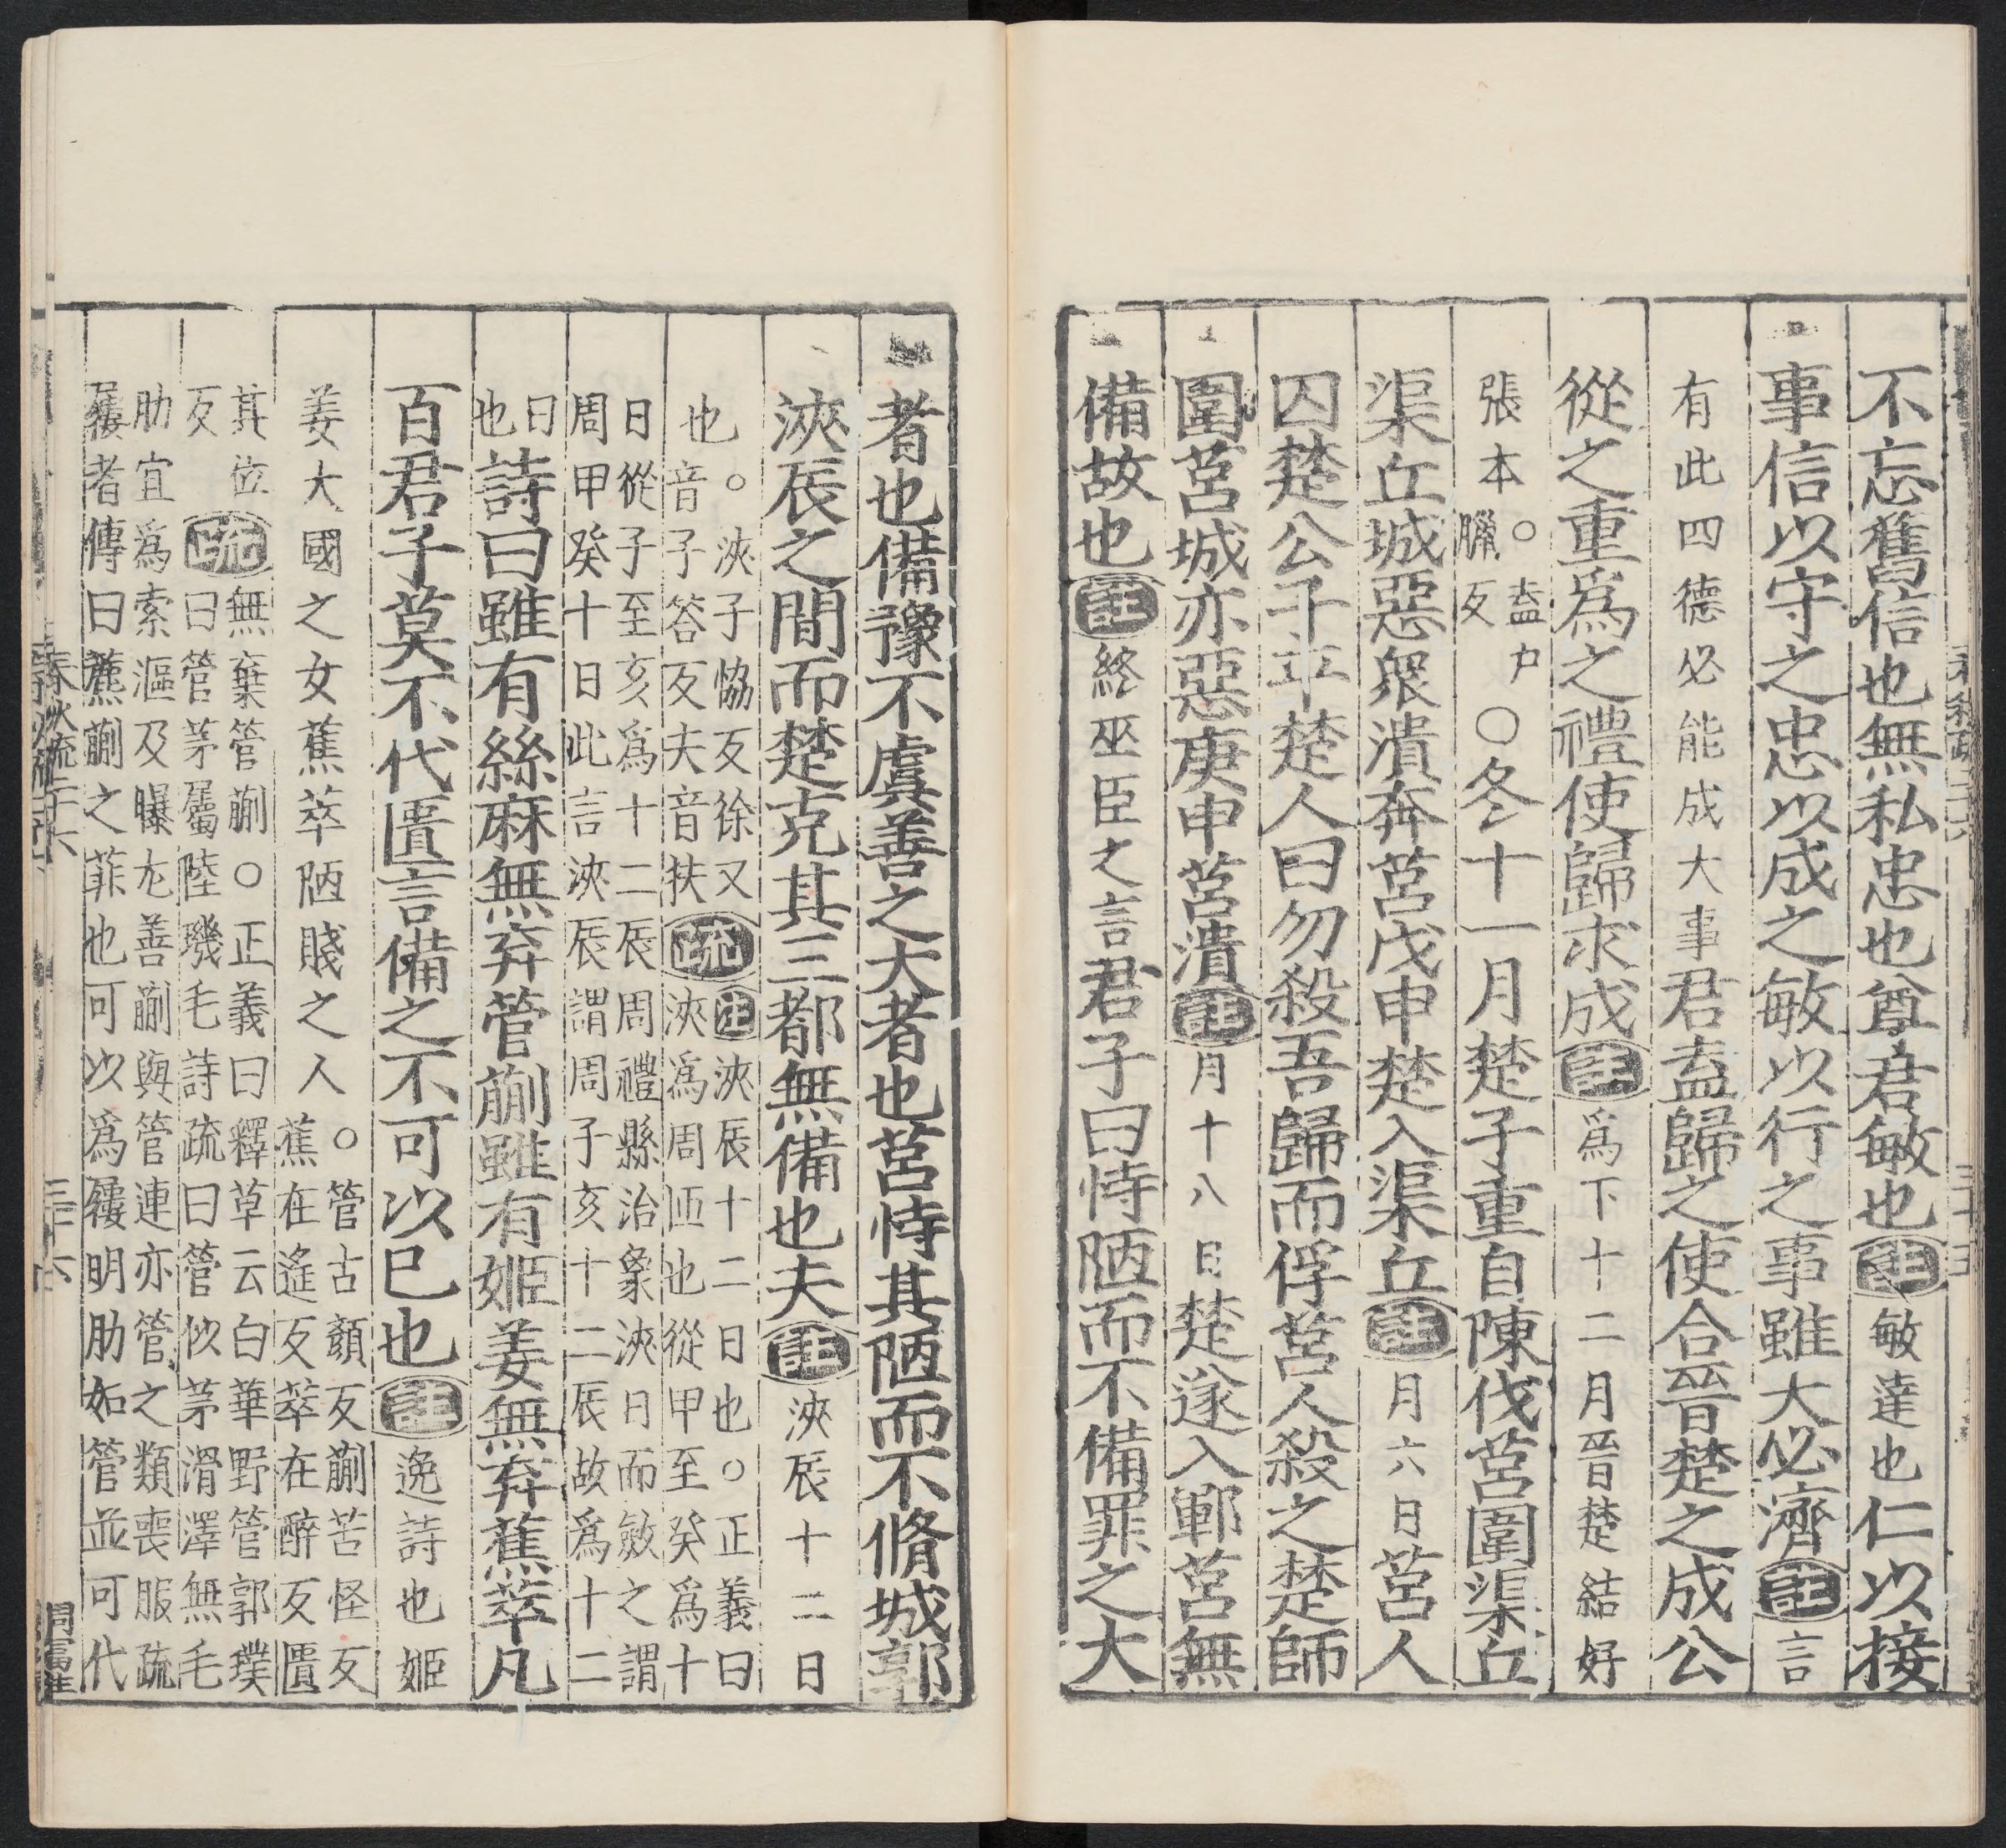 不忘舊信也無私忠也尊君敏也註敏達也仁以接
事信以守之忠以成之敏以行之事雖大必濟註言
有此四德必能成大事君盍歸之使合晉楚之成公
從之重爲之禮使歸求成註爲下十二月晉楚結好
張本○盍户臘反○冬十一月楚子重自陳伐莒圍渠丘
渠丘城惡衆潰奔莒戊申楚入渠丘註月六日莒人
囚楚公子平楚人曰勿殺吾歸而俘莒人殺之楚師
圍莒城亦惡庚申莒潰註月十八日楚遂入鄆莒無
備故也註終巫臣之言君子曰恃陋而不備罪之大
者也備豫不虞善之大者也莒恃其陋而不脩城郭
浹辰之間而楚克其三都無備也夫註浹辰十二日
也。浹子協反徐又音子答反夫音扶疏注浹辰十二日也○正義曰浹爲周匝也從甲至癸爲十
日從子至亥爲十二辰周禮縣治象浹日而斂之謂周甲癸十日此言浹辰謂周子亥十二辰故爲十二
日也詩曰雖有絲麻無弃管蒯雖有姬姜無弃蕉萃凡
百君子莫不代匱言備之不可以已也註逸詩也姬
姜大國之女蕉萃陋賤之人○管古顏反蒯苦怪反蕉在遙反萃在醉反匱
其位反疏無棄管蒯○正義曰釋草云白華野管郭璞曰管茅屬陸璣毛詩疏曰管似茅滑澤無毛
肋宜爲索漚及曝尤善蒯與管連亦管之類喪服疏屨者傳曰藨蒯之菲也可以爲屨明肋如管並可代
春秋疏二十六
三十六